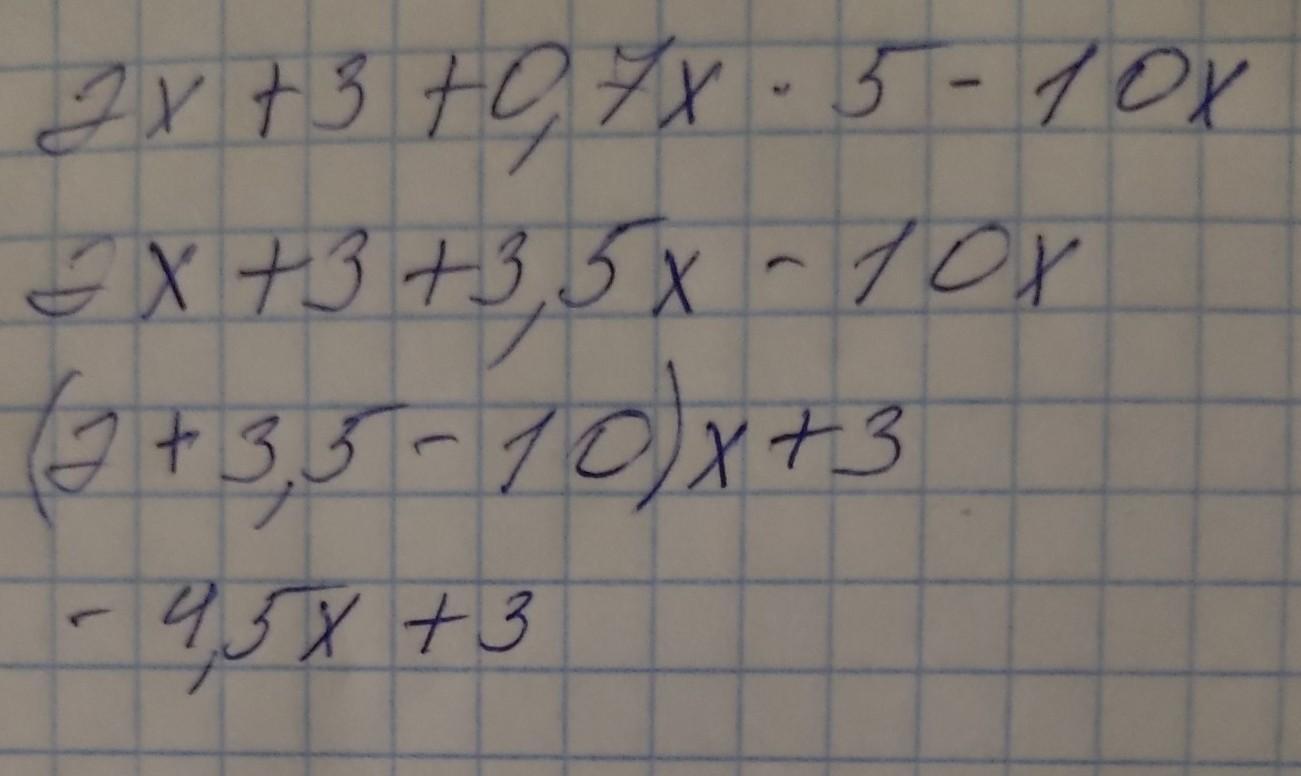 2x + 3 + 0,7x · 5 - 10x
2x + 3 + 3,5x - 10x
(2 + 3,5 - 10)x + 3
- 4,5x + 3